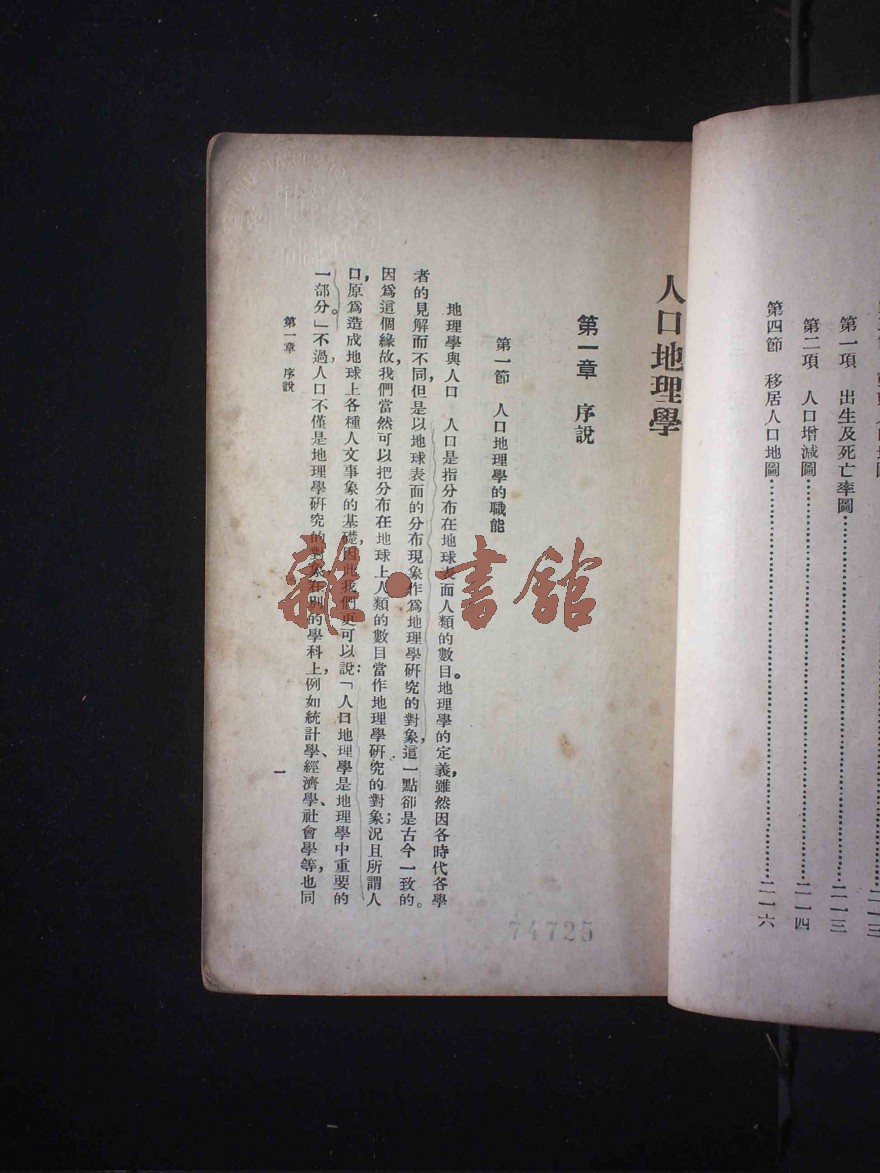 第一項　出生及死亡率圖……二一三
第二項　人口增減圖……二一四
第四節　移居人口地圖……二一六
人口地理學
第一章　序說
第一節　人口地理學的職能
地理學與人口　人口是指分布在地球表面人類的數目。地理學的定義，雖然因各時代各學
者的見解而不同，但是以地球表面的分布現象作爲地理學研究的對象，這一點卻是古今一致的。
因爲這個緣故，我們當然可以把分布在地球上人類的數目當作地理學研究的對象；況且所謂人
口，原爲造成地球上各種人文事象的基礎，因此我們更可以說：「人口地理學是地理學中重要的
一部分。」不過人口不僅是地理學研究的對象，在別的學科上，例如統計學、經濟學、社會學等，也同
第一章　序說
一
74725
雜·書館